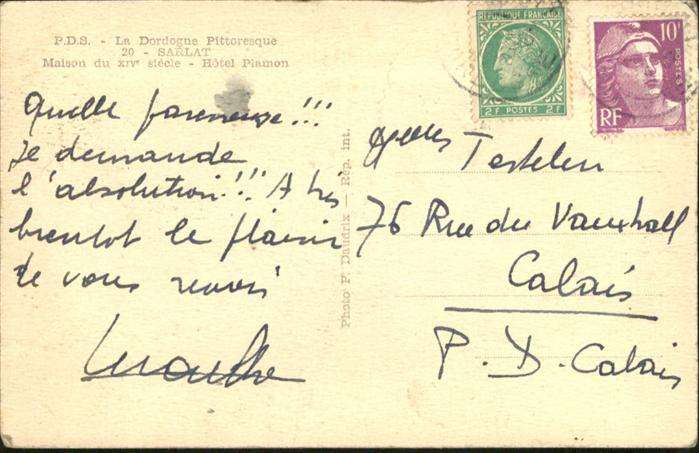 P.D.S. - La Dordogne Pittoresque
20 - SARLAT
Maison du XIVe siècle - Hôtel Plamon
Quelle paresseuse !!!
Je demande
l'absolution !!! A très
bientôt le plaisir
de vous revoir
Photo P. Daudrix - Rép. int.
RÉPUBLIQUE FRANÇAISE
2F POSTES 2F
10F
POSTES
RF
76 Rue du Vauxhall
Calais
P. D. Calais